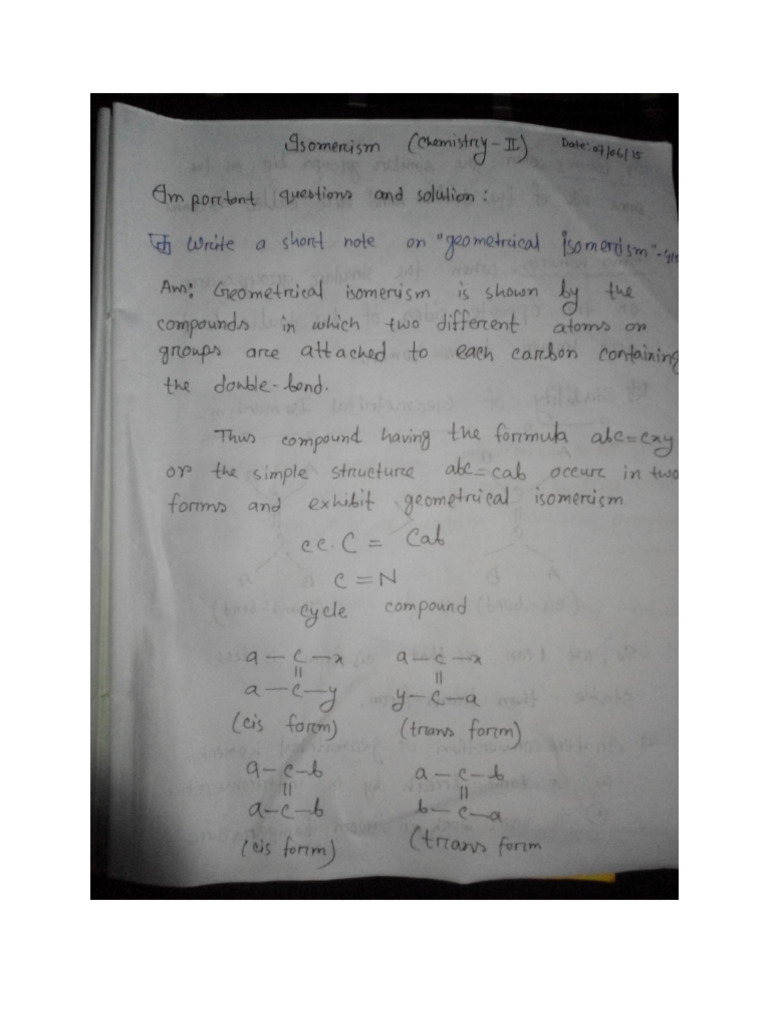 Isomerism (Chemistry-II) Date: 07/06/15
Important questions and solution:
Write a short note on "geometrical isomerism"
Ans: Geometrical isomerism is shown by the
compounds in which two different atoms or
groups are attached to each carbon containing
the double-bond.
Thus compound having the formula abc=cxy
or the simple structure abc=cab occure in two
forms and exhibit geometrical isomerism.
C = Cab
C = N
cycle compound
a-c-x a-c-x
|| ||
a-c-y y-c-a
(cis form) (trans form)
a-c-b a-c-b
|| ||
a-c-b b-c-a
(cis form) (trans form